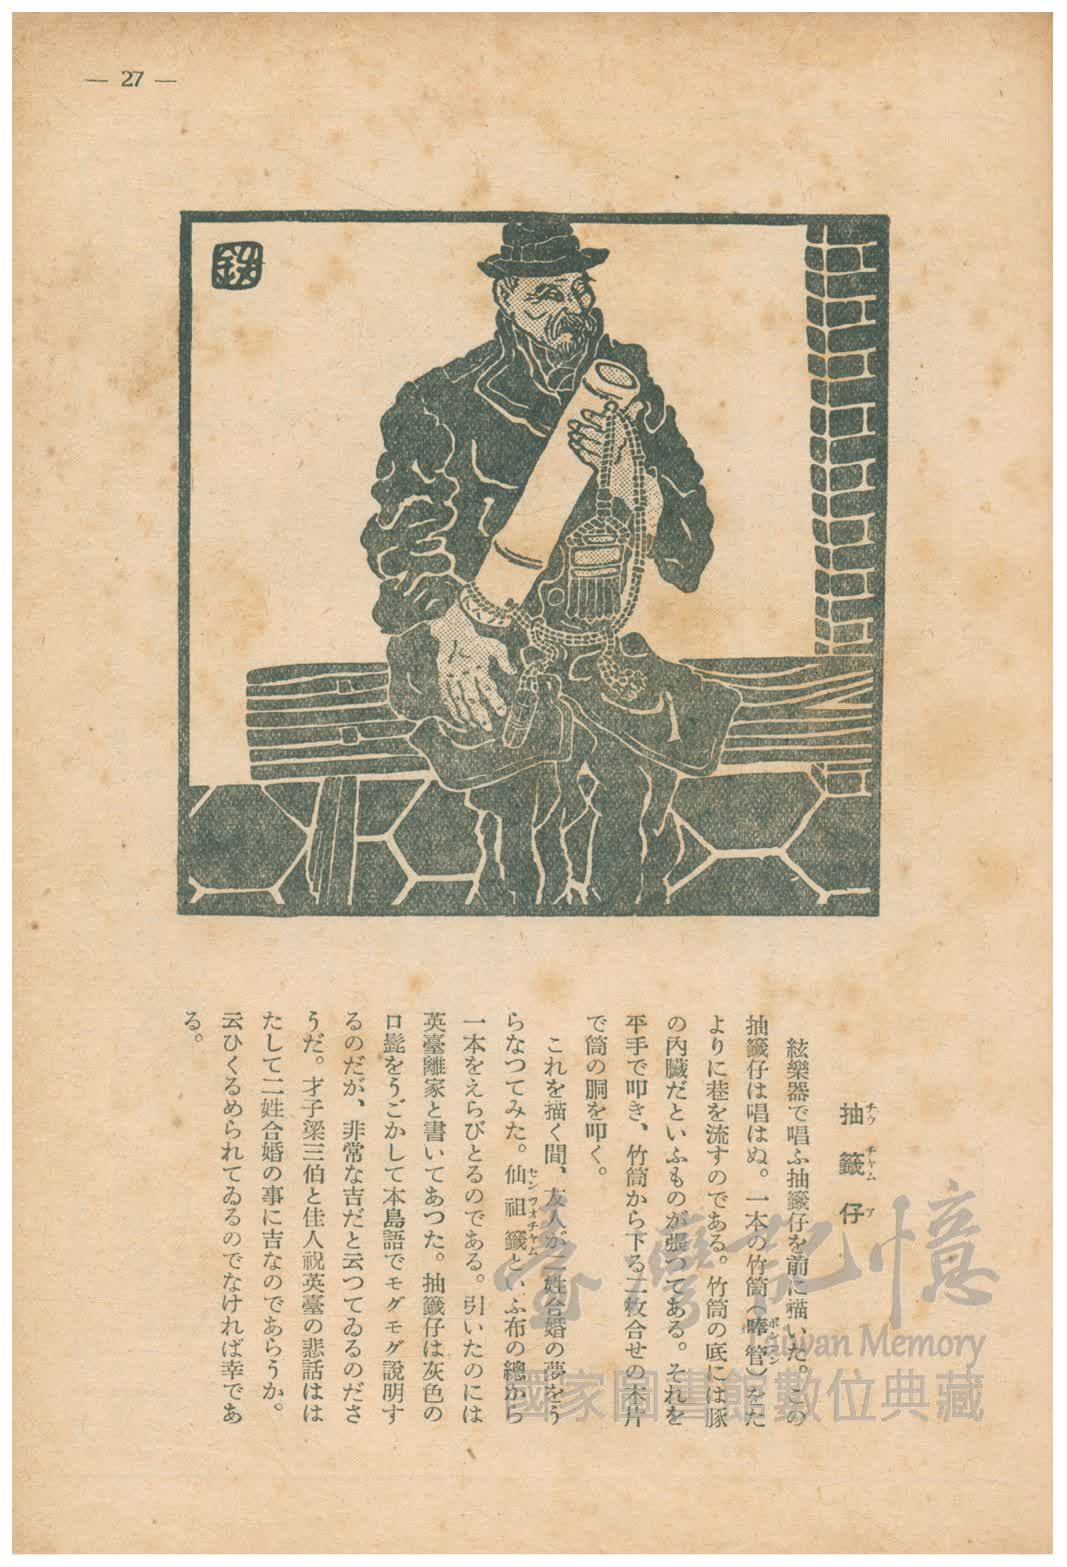 — 27 —
鉄
抽籤仔
チウ チヤム ア
絃樂器で唱ふ抽籤仔を前に描いた。この
抽籤仔は唱はぬ。一本の竹筒(嗙管)をた
よりに巷を流すのである。竹筒の底には豚
の內臓だといふものが張つてある。それを
平手で叩き、竹筒から下る二枚合せの木片
で筒の胴を叩く。
これを描く間、友人が二姓合婚の夢をう
らなつてみた。仙祖籤といふ布の總から
センツオチヤム
一本をえらびとるのである。引いたのには
英臺離家と書いてあつた。抽籤仔は灰色の
口髭をうごかして本島語でモグモグ說明す
るのだが、非常な吉だと云つてゐるのださ
うだ。才子梁三伯と佳人祝英臺の悲話はは
たして二姓合婚の事に吉なのであらうか。
云ひくるめられてゐるのでなければ幸であ
る。
臺灣記憶
Taiwan Memory
國家圖書館數位典藏